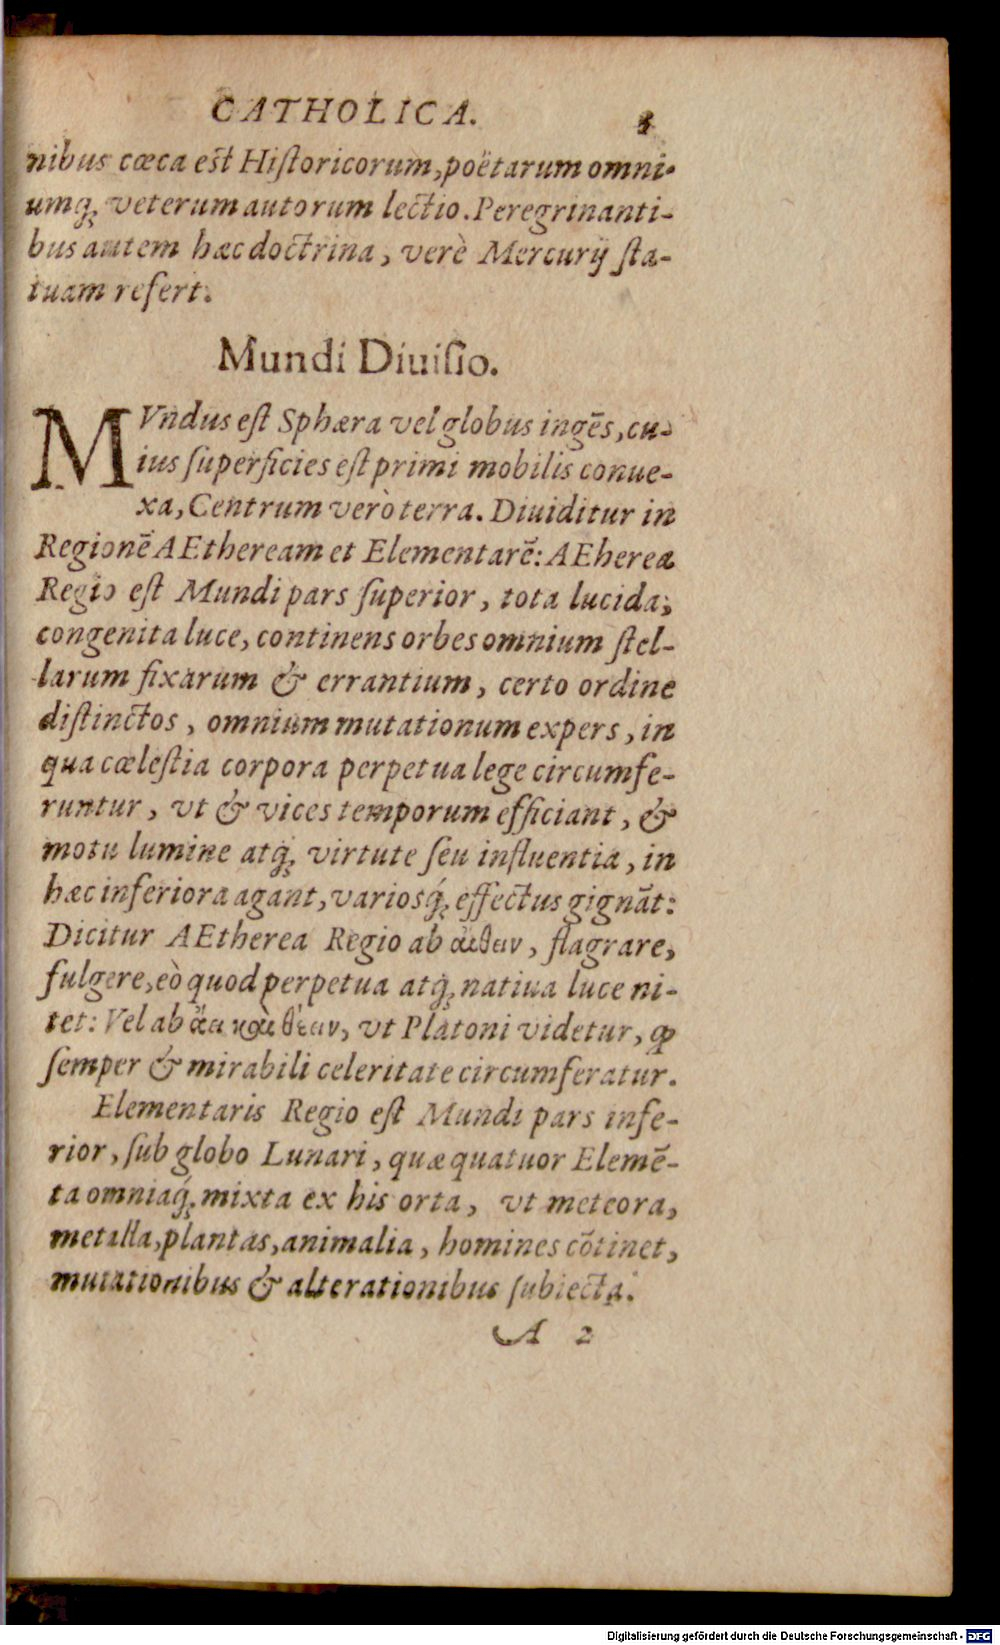 CATHOLICA. 3
nibus cœca est Hiſtoricorum, poëtarum omni-
umq́; veterum autorum lectio. Peregrinanti-
bus autem hæc doctrina, verè Mercurij ſta-
tuam refert.
Mundi Diuiſio.
MVndus eſt Sphæra vel globus ingẽs, cu-
ius ſuperficies eſt primi mobilis conue-
xa, Centrum verò terra. Diuiditur in
Regionẽ AEtheream et Elementarẽ: AEherea
Regio eſt Mundi pars ſuperior, tota lucida,
congenita luce, continens orbes omnium ſtel-
larum fixarum & errantium, certo ordine
diſtinctos, omnium mutationum expers, in
qua cœleſtia corpora perpetua lege circumfe-
runtur, vt & vices temporum efficiant, &
motu lumine atq́; virtute ſeu influentia, in
hæc inferiora agant, variosq́; effectus gignãt:
Dicitur AEtherea Regio ab αἴθειν, flagrare,
fulgere, eò quod perpetua atq́; natiua luce ni-
tet: Vel ab ἄει καὶ θέειν, vt Platoni videtur, ꝙ
ſemper & mirabili celeritate circumferatur.
Elementaris Regio eſt Mundi pars infe-
rior, ſub globo Lunari, quæ quatuor Elemẽ-
ta omniaq́; mixta ex his orta, vt meteora,
metalla, plantas, animalia, homines cõtinet,
mutationibus & alterationibus ſubiecta.
A 2
Digitalisierung gefördert durch die Deutsche Forschungsgemeinschaft - DFG